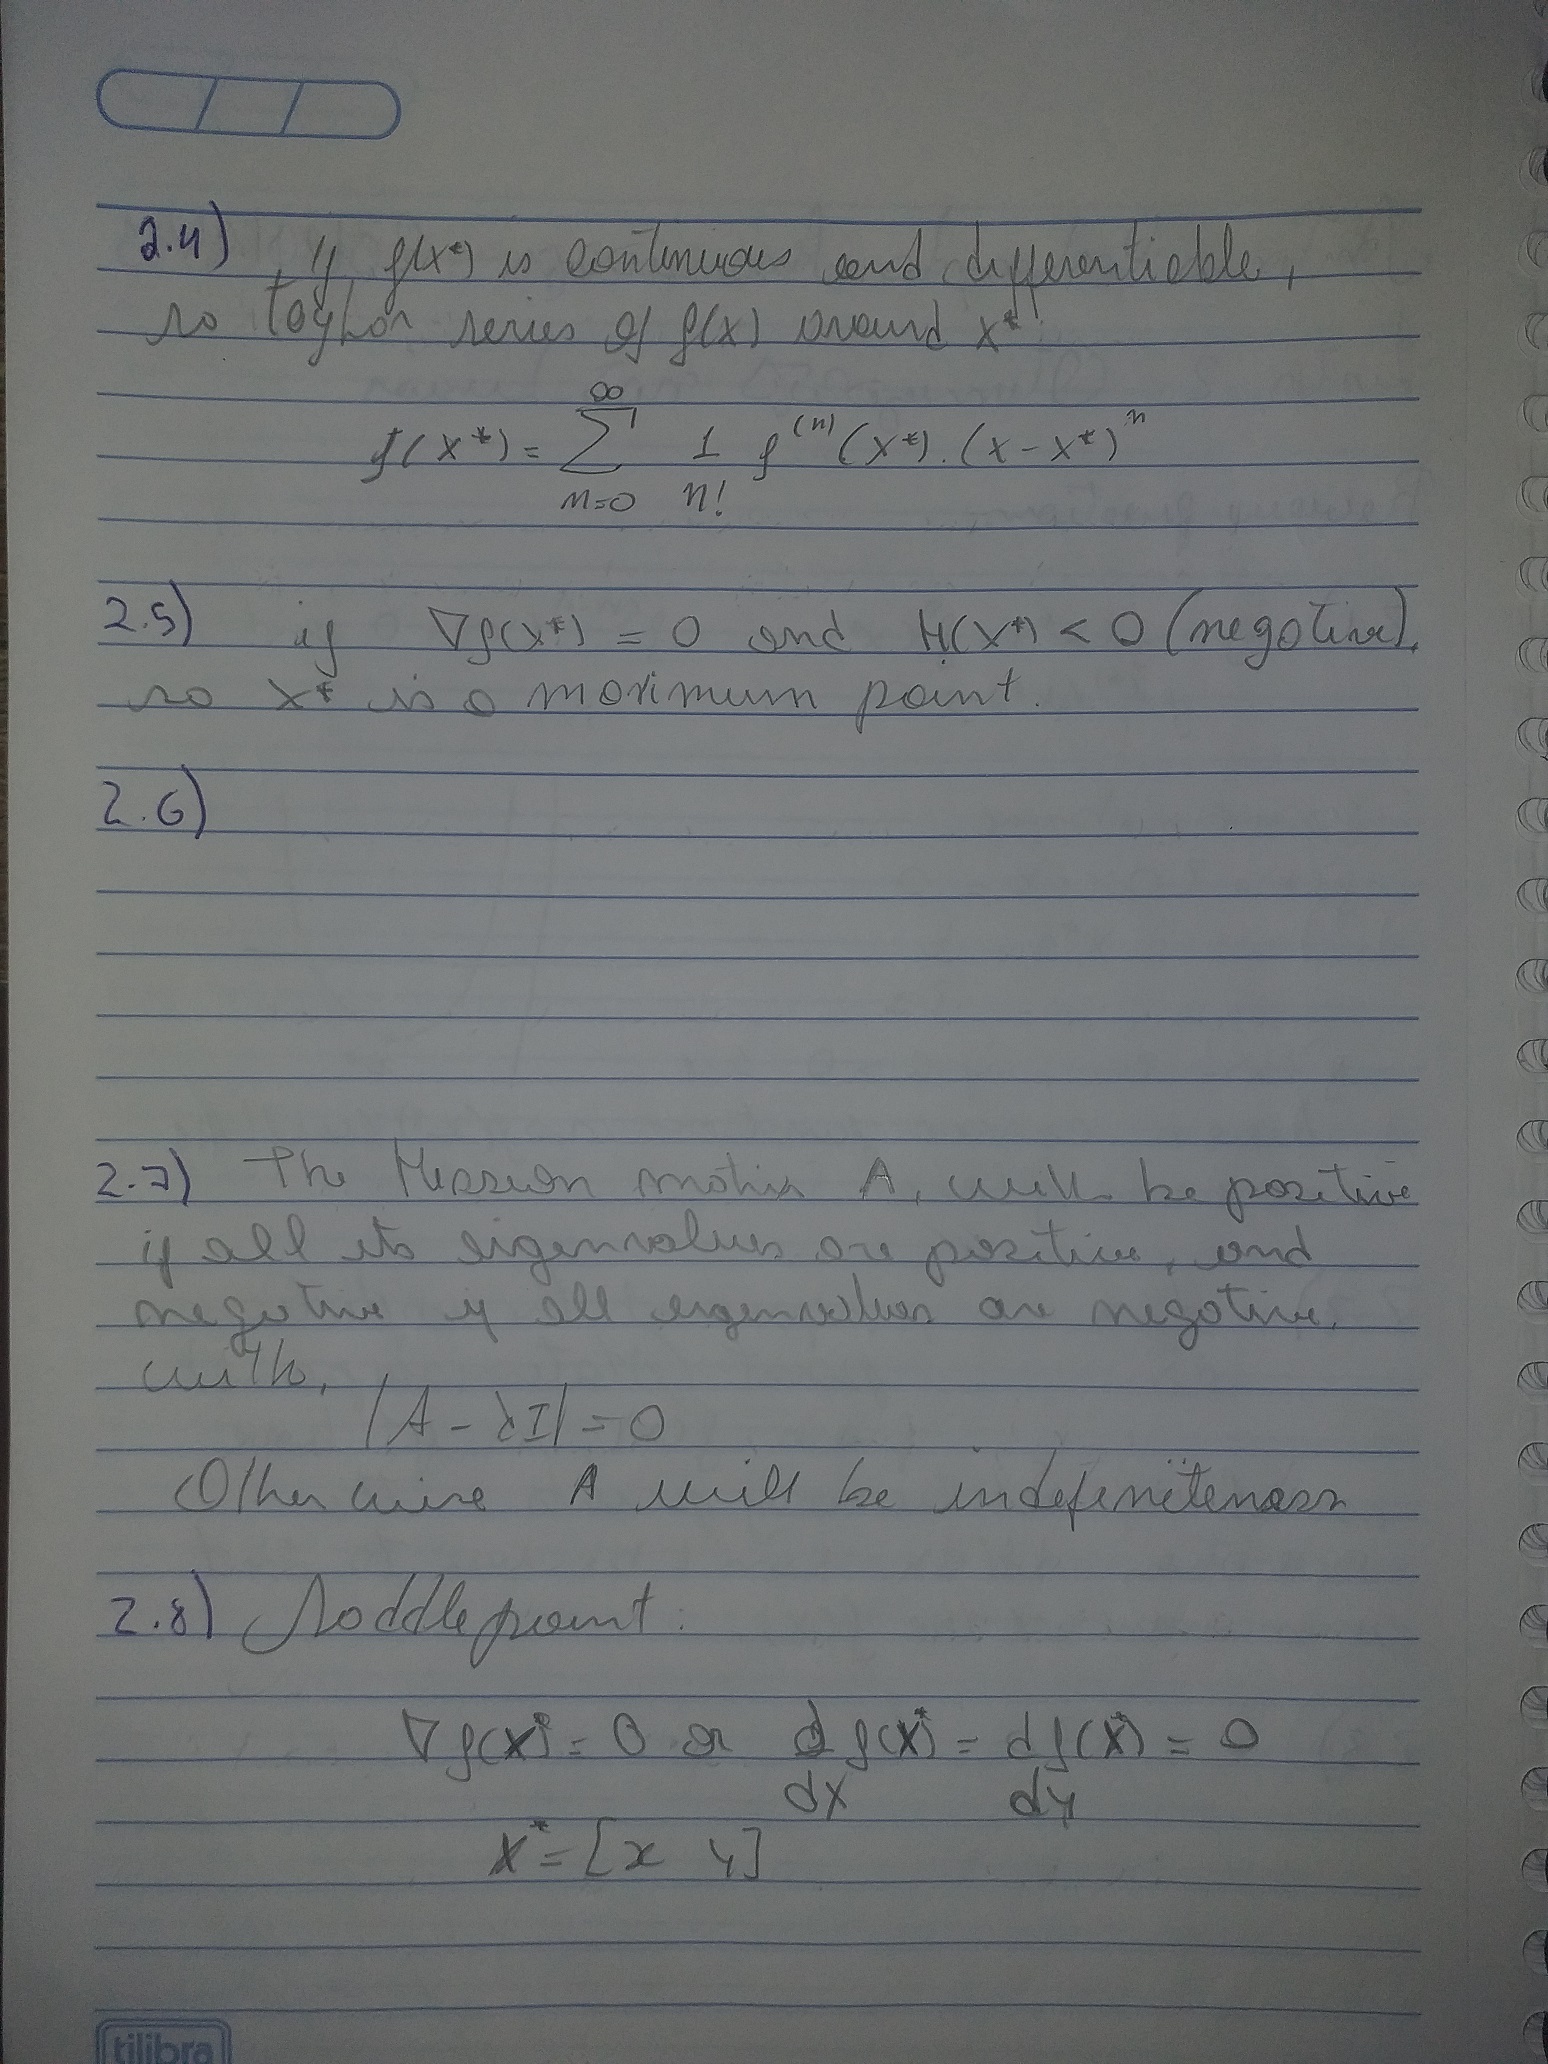 2.4) If f(x*) is continuous and differentiable,
so Taylor series of f(x) around x*:
f(x*) = ∑ 1 f⁽ⁿ⁾(x*).(x-x*)ⁿ
∞
n=0 n!
2.5) if ∇f(x*) = 0 and H(x*) < 0 (negative),
so x* is a maximum point.
2.6)
2.7) The Hessian matrix A, will be positive
if all its eigenvalues are positive, and
negative if all eigenvalues are negative.
with,
|A - λI| = 0
Otherwise A will be indefiniteness
2.8) Saddle point:
∇f(x*) = 0 or d f(x*) = d f(x*) = 0
dx dy
x* = [x y]
tilibra